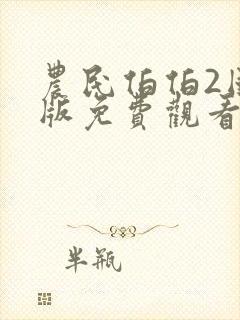 農民伯伯2
版免費觀看
半瓶